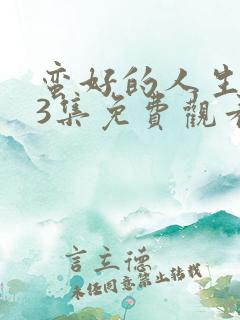 蛮好的人生
3集免費觀看
言立德
未经同意禁止转载